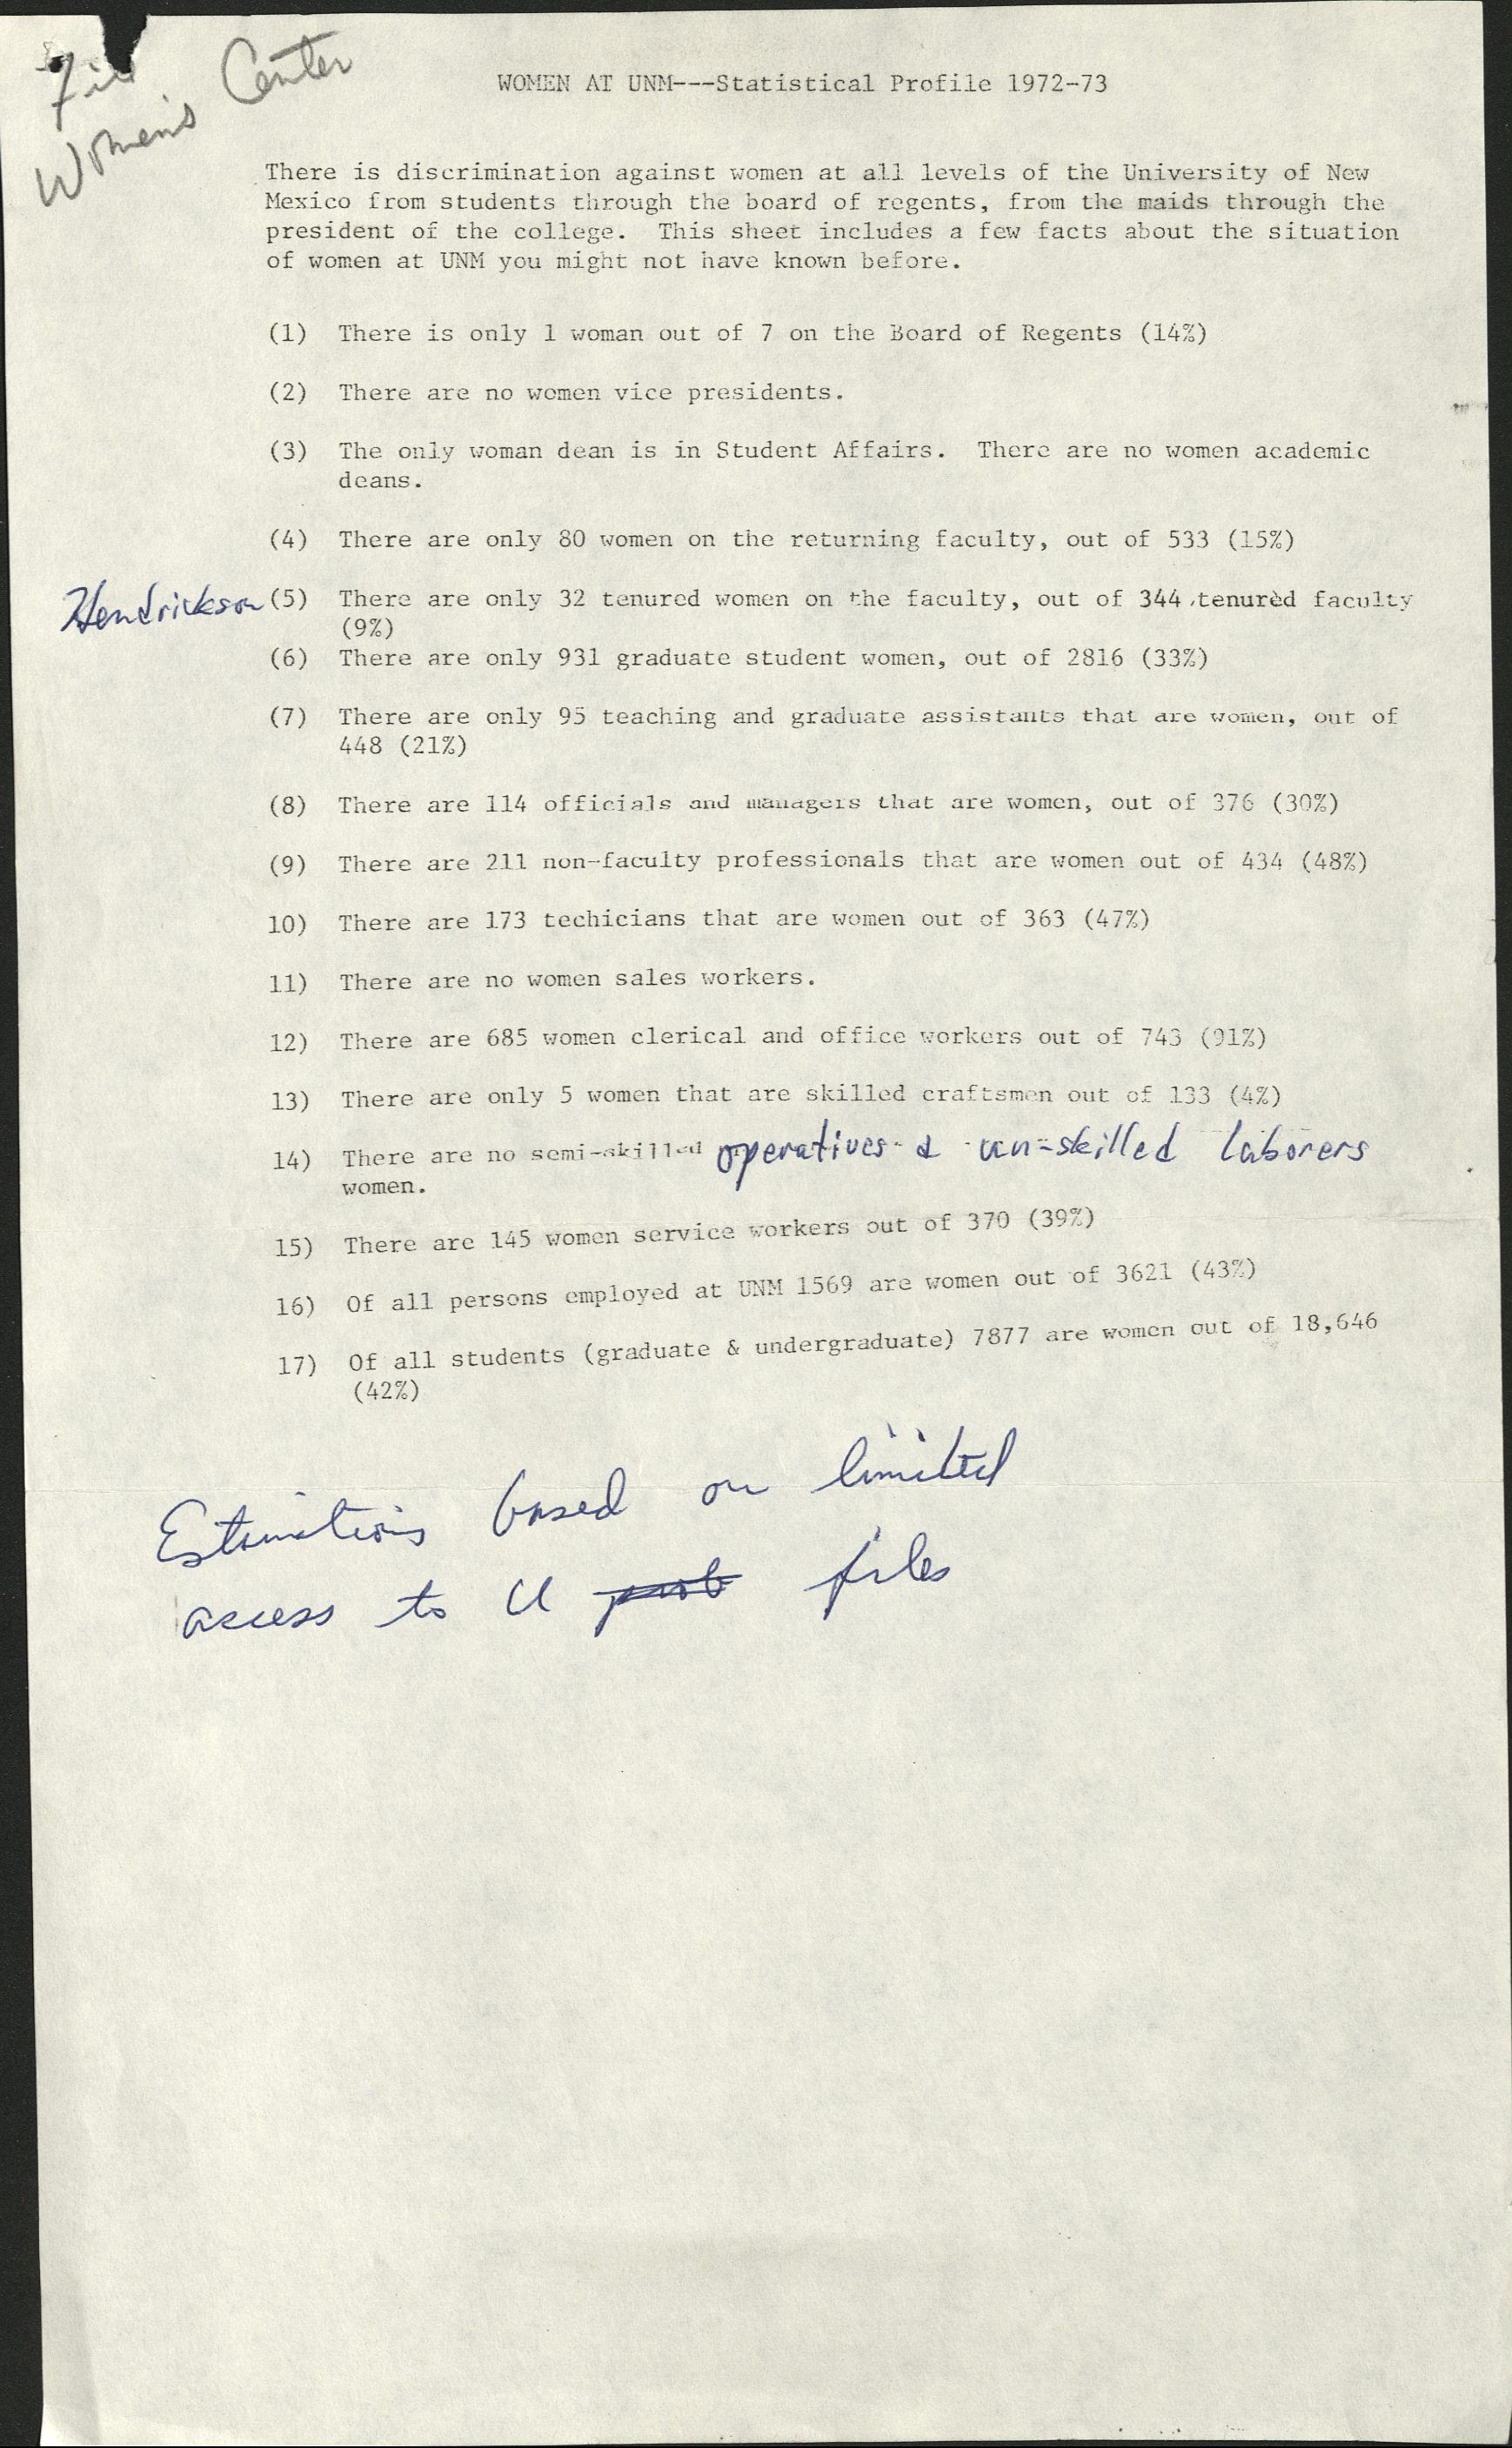 File
Women's Center
WOMEN AT UNM---Statistical Profile 1972-73
There is discrimination against women at all levels of the University of New
Mexico from students through the board of regents, from the maids through the
president of the college.  This sheet includes a few facts about the situation
of women at UNM you might not have known before.
(1) There is only 1 woman out of 7 on the Board of Regents (14%)
(2) There are no women vice presidents.
(3) The only woman dean is in Student Affairs.  There are no women academic
deans.
(4) There are only 80 women on the returning faculty, out of 533 (15%)
Hendrickson (5) There are only 32 tenured women on the faculty, out of 344 tenured faculty
(9%)
(6) There are only 931 graduate student women, out of 2816 (33%)
(7) There are only 95 teaching and graduate assistants that are women, out of
448 (21%)
(8) There are 114 officials and managers that are women, out of 376 (30%)
(9) There are 211 non-faculty professionals that are women out of 434 (48%)
10) There are 173 techicians that are women out of 363 (47%)
11) There are no women sales workers.
12) There are 685 women clerical and office workers out of 743 (91%)
13) There are only 5 women that are skilled craftsmen out of 133 (4%)
14) There are no semi-skilled operatives & un-skilled laborers
women.
15) There are 145 women service workers out of 370 (39%)
16) Of all persons employed at UNM 1569 are women out of 3621 (43%)
17) Of all students (graduate & undergraduate) 7877 are women out of 18,646
(42%)
Estimations based on limited
access to U files